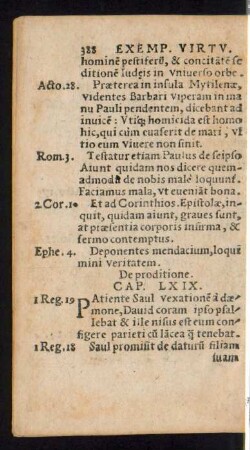 388 EXEMP. VIRTV.
hominē pestiferū, & concitātē se
ditionē Iudeis in Vniuerso orbe.
Acto.28. Præterea in insula Mytilenæ,
videntes Barbari viperam in ma
nu Pauli pendentem, dicebant ad
inuicē: Vtiq; homicida est homo
hic, qui cùm euaserit de mari, vl
tio eum viuere non sinit.
Rom.3. Testatur etiam Paulus de seipso
Aiunt quidam nos dicere quem-
admodū de nobis malè loquunt.
Faciamus mala, vt eueniāt bona.
2.Cor.10 Et ad Corinthios. Epistolæ, in-
quit, quidam aiunt, graues sunt,
at præsentia corporis infirma, &
sermo contemptus.
Ephe. 4. Deponentes mendacium, loquī
mini veritatem.
De proditione.
CAP. LXIX.
1 Reg.19 PAtiente Saul vexationē à dæ-
mone, Dauid coram ipso psal-
lebat & ille nisus est eum con-
figere parieti cū lācea q̄ tenebat.
1 Reg.18 Saul promisit de daturū filiam
suam